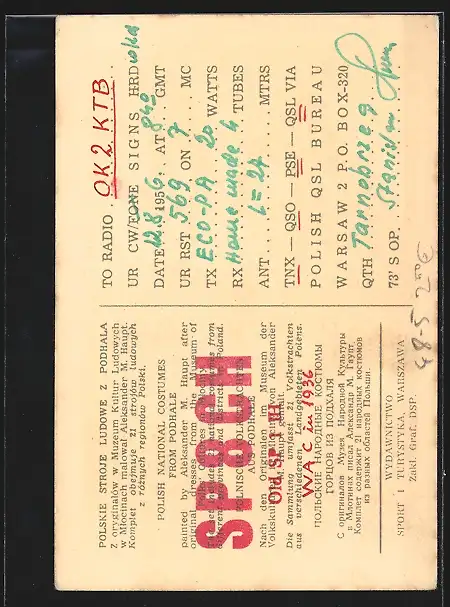 TO RADIO OK2KTB
UR CW/FONE SIGNS HRD
DATE 12.8 1956. AT 840 GMT
UR RST 569 ON 7 MC
TX ECO-PA 20 WATTS
RX Home made 4 TUBES
ANT L=24 MTRS
TNX — QSO — PSE — QSL VIA
POLISH QSL BUREAU
WARSAW 2 P.O. BOX-320
QTH Tarnobrzeg
73'S OP. Stanisław
POLSKIE STROJE LUDOWE Z PODHALA
Z oryginałów w Muzeum Kultur Ludowych
w Młocinach malował Aleksander M. Haupt.
Komplet obejmuje 21 strojów ludowych
z różnych regionów Polski.
POLISH NATIONAL COSTUMES
FROM PODHALE
painted by Aleksander M. Haupt after
original dresses from the Museum of
SP8CH
POLNISCHE VOLKSTRACHTEN
AUS PODHALE
Nach den Originalen im Museum der
Volkskulturen in Młociny von Aleksander
M. Haupt gemalt.
Die Sammlung umfasst 21 Volkstrachten
aus verschiedenen Landgebieten Polens.
WAC in 1936
ПОЛЬСКИЕ НАРОДНЫЕ КОСТЮМЫ
ГОРЦОВ ИЗ ПОДХАЛЯ
С оригиналов Музея Народной Культуры
в Млотинах писал Александр М. Гаупт.
Комплект содержит 21 народных костюмов
из разных областей Польши.
WYDAWNICTWO
SPORT I TURYSTYKA, WARSZAWA
Zakł. Graf. DSP.